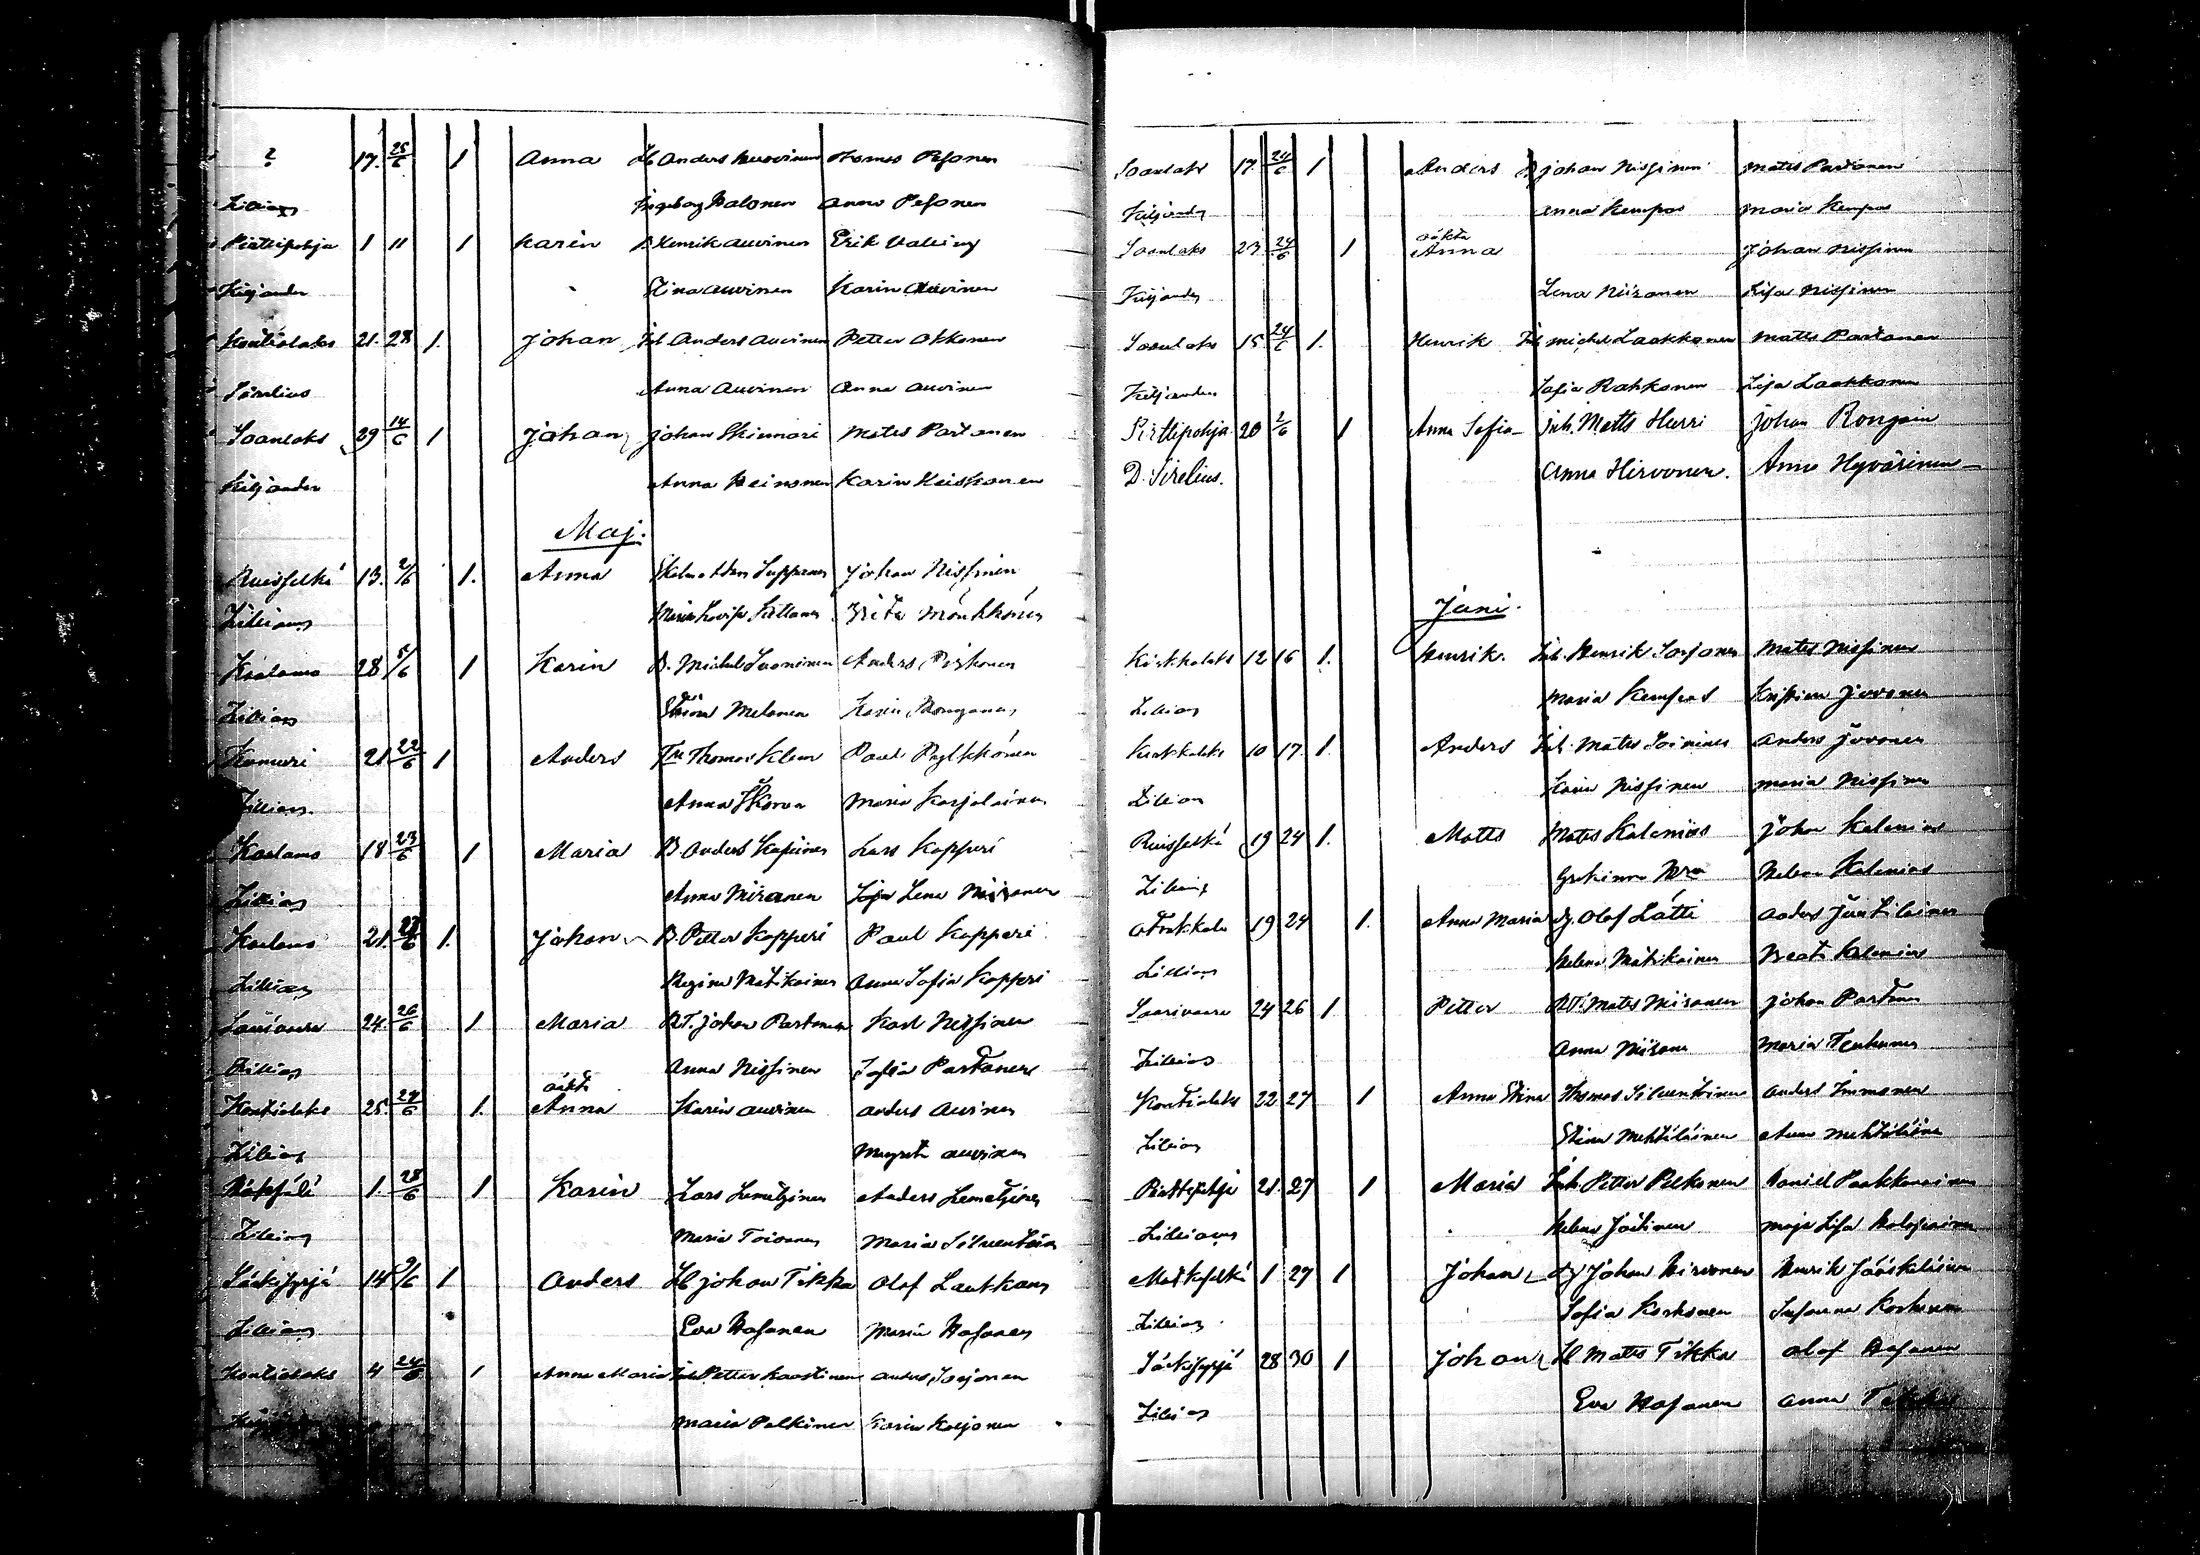 ? 17. 25/6 1 Anna Anders Auvinen Thomas Pesonen
Zilliax Ingeborg Halonen Anna Pesonen
Pirttipohja 1 11 1 Karin B Henrik Auvinen Erik Valling
Kiljander Stina Auvinen Karin Auvinen
Kontiolaks 21. 28 1. Johan Anders Auvinen Petter Okkonen
Sirelius Anna Auvinen Anna Auvinen
Soanlaks 29 14/6 1 Johan Johan Skinnari Matts Partanen
Kiljander Anna Heinonen Karin Heiskanen
Maj.
Ruisselkä 13. 2/6 1. Anna Johan Nissinen
Zilliax Maria Lovisa Grita Mönkkönen
Koalamo 28 5/6 1 Karin B. Michel Soaninen Anders Pirhonen
Zilliax Stina Melonen Karin
Kumuri 21 22/6 1 Anders Thomas Klem Paul Pylkkönen
Zilliax Anna Maria Karjalainen
Koalamo 18 23/6 1 Maria B Anders Kapiinen Lars Kopperi
Zilliax Anna Niiranen Lisa Lena Niiranen
Koalamo 21. 23/6 1. Johan B. Petter Kopperi Paul Kopperi
Zilliax Regina Matikainen Anna Sofia Kopperi
24. 26/6 1 Maria Johan Partanen Karl Nissinen
Zilliax Anna Nissinen Sofia Partanen
Kontiolaks 25 27/6 1. oäkta Anna Karin Auvinen Anders Auvinen
Zilliax Margreta Auvinen
1. 28/6 1 Karin Lars Lemetyinen Anders Lemetyinen
Zilliax Maria Toivanen Maria Silventoin
Särkisyrjä 14 9/6 1 Anders Johan Tikka Olof Lautkan
Zilliax Eva Hasanen Maria Hasanen
Kontiolaks 4 24/6 1 Anna Maria Petter Kaastinen Anders Sorjonen
Maria Pelkinen Karin Korjonen
Soanlaks 17. 24/6 1 Anders Johan Nissinen Matts Partanen
Kiljander Anna Kempas Maria Kempas
Soanlaks 23 24/6 1 oäkta Anna Johan Nissinen
Kiljander Lena Niiranen Lisa Nissinen
Soanlaks 15 24/6 1. Henrik Michel Laakkonen Matts Partanen
Kiljander Sofia Rahkonen Lisa Laakkonen
Pirttipohja 20 2/6 1 Anna Sofia Inh. Matts Hurri Johan Rongain
D. Sirelius. Anna Hirvonen. Anna Hyvärinen
Juni.
Kirkkolaks 12 16 1. Henrik. Inh. Henrik Sorjonen Matts Nissinen
Zilliax Maria Kempas Kristina Juvonen
Kirkkolaks 10 17. 1. Anders Inh. Matts Soininen Anders Juvonen
Zilliax Karin Nissinen Maria Nissinen
Ruisselkä 19 24 1. Matts Matts Kalenius Johan Kalenius
Zilliax Helena Kalenius
19 24 1. Anna Maria Olof Lätti Anders Juntilainen
Zilliax Helena Matikainen Beata Kalenius
Soarivaara 24 26 1 Petter Matts Niiranen Johan Partanen
Zilliax Anna Niiranen Maria Tenhunen
Kontiolaks 22 27 1 Anna Stina Thomas Silventoinen Anders Immonen
Zilliax Stina Mehtäläinen Anna Mehtäläinen
Pirttipohja 21. 27 1 Maria Inh. Petter Pelkonen Daniel Paakkunainen
Zilliax Helena Maja Lisa Holopainen
Matkaselkä 1 27 1 Johan Johan Hirvonen Henrik Jääskeläinen
Zilliax Sofia Korhonen Susanna Korhonen
Särkisyrjä 28 30 1 Johan Matts Tikka Olof Hasanen
Zilliax Eva Hasanen Anna Tikka